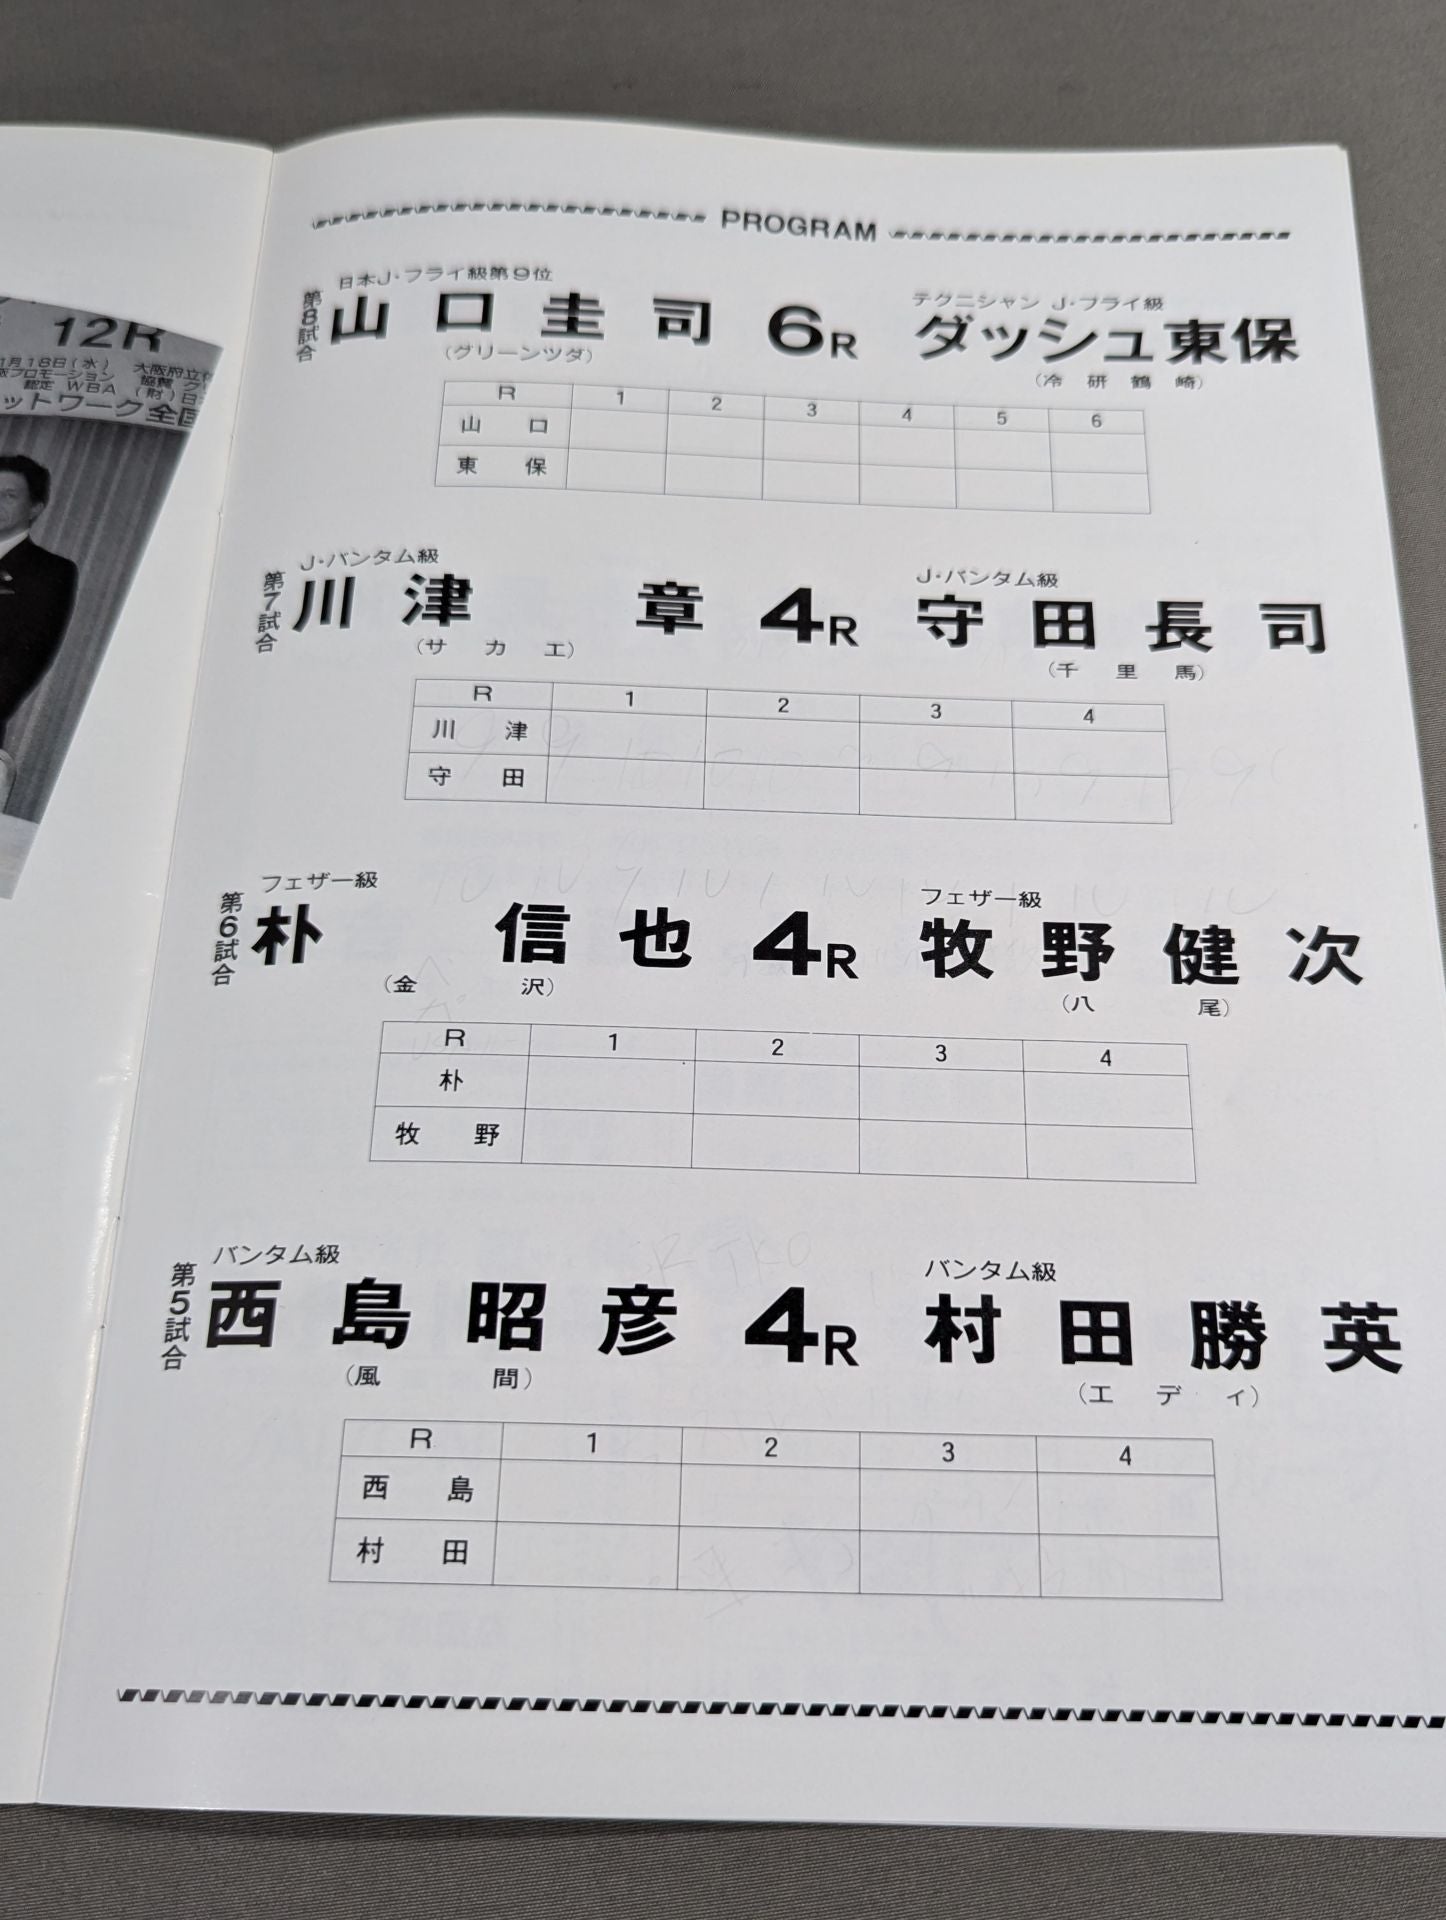 12R
1月18日(水)
大阪府立体
プロモーション
協賛 グ
認定 WBA
(財)日本
ットワーク全国
PROGRAM
第8試合
日本J・フライ級第9位
山口圭司 6R
テクニシャン J・フライ級
ダッシュ東保
(グリーンツダ)
(冷研鶴崎)
R 1 2 3 4 5 6
山口
東保
第7試合
J・バンタム級
川津 章 4R
J・バンタム級
守田長司
(サカエ)
(千里馬)
R 1 2 3 4
川津
守田
第6試合
フェザー級
朴 信也 4R
フェザー級
牧野健次
(金沢)
(八尾)
R 1 2 3 4
朴
牧野
第5試合
バンタム級
西島昭彦 4R
バンタム級
村田勝英
(風間)
(エディ)
R 1 2 3 4
西島
村田